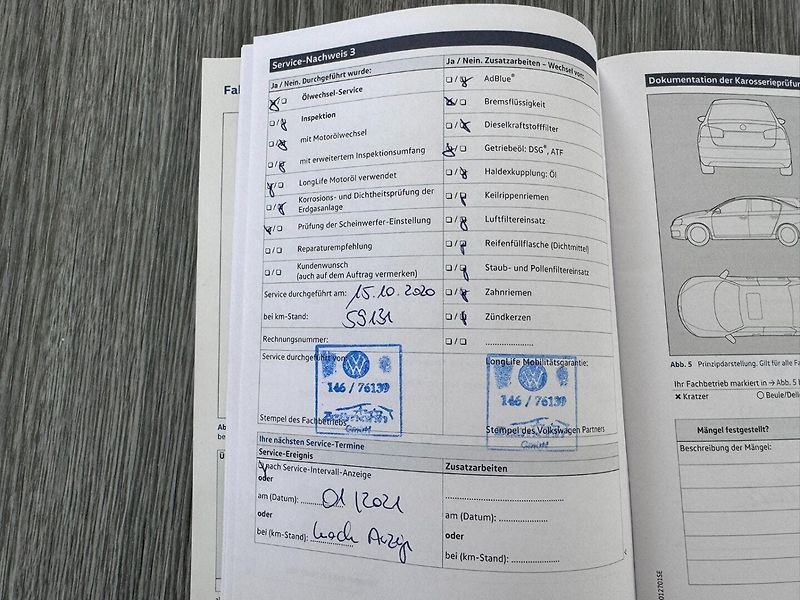 Service-Nachweis 3
Ja / Nein. Durchgeführt wurde:
Ölwechsel-Service
Inspektion
mit Motorölwechsel
mit erweitertem Inspektionsumfang
LongLife Motoröl verwendet
Korrosions- und Dichtheitsprüfung der
Erdgasanlage
Prüfung der Scheinwerfer-Einstellung
Reparaturempfehlung
Kundenwunsch
(auch auf dem Auftrag vermerken)
Service durchgeführt am: 15.10.2020
bei km-Stand: 59131
Rechnungsnummer:
Service durchgeführt vom:
146 / 76139
GmbH
Stempel des Fachbetriebs
Ja / Nein. Zusatzarbeiten – Wechsel von:
AdBlue®
Bremsflüssigkeit
Dieselkraftstofffilter
Getriebeöl: DSG®, ATF
Haldexkupplung: Öl
Keilrippenriemen
Luftfiltereinsatz
Reifenfüllflasche (Dichtmittel)
Staub- und Pollenfiltereinsatz
Zahnriemen
Zündkerzen
LongLife Mobilitätsgarantie:
146 / 76139
GmbH
Stempel des Volkswagen Partners
Ihre nächsten Service-Termine
Service-Ereignis
nach Service-Intervall-Anzeige
oder
am (Datum): 01/2021
oder
bei (km-Stand): nach Anzeige
Zusatzarbeiten
am (Datum):
oder
bei (km-Stand):
Dokumentation der Karosserieprüfun
Abb. 5 Prinzipdarstellung. Gilt für alle Fa
Ihr Fachbetrieb markiert in → Abb. 5
× Kratzer
Beule/Del
Mängel festgestellt?
Beschreibung der Mängel:
012701SE